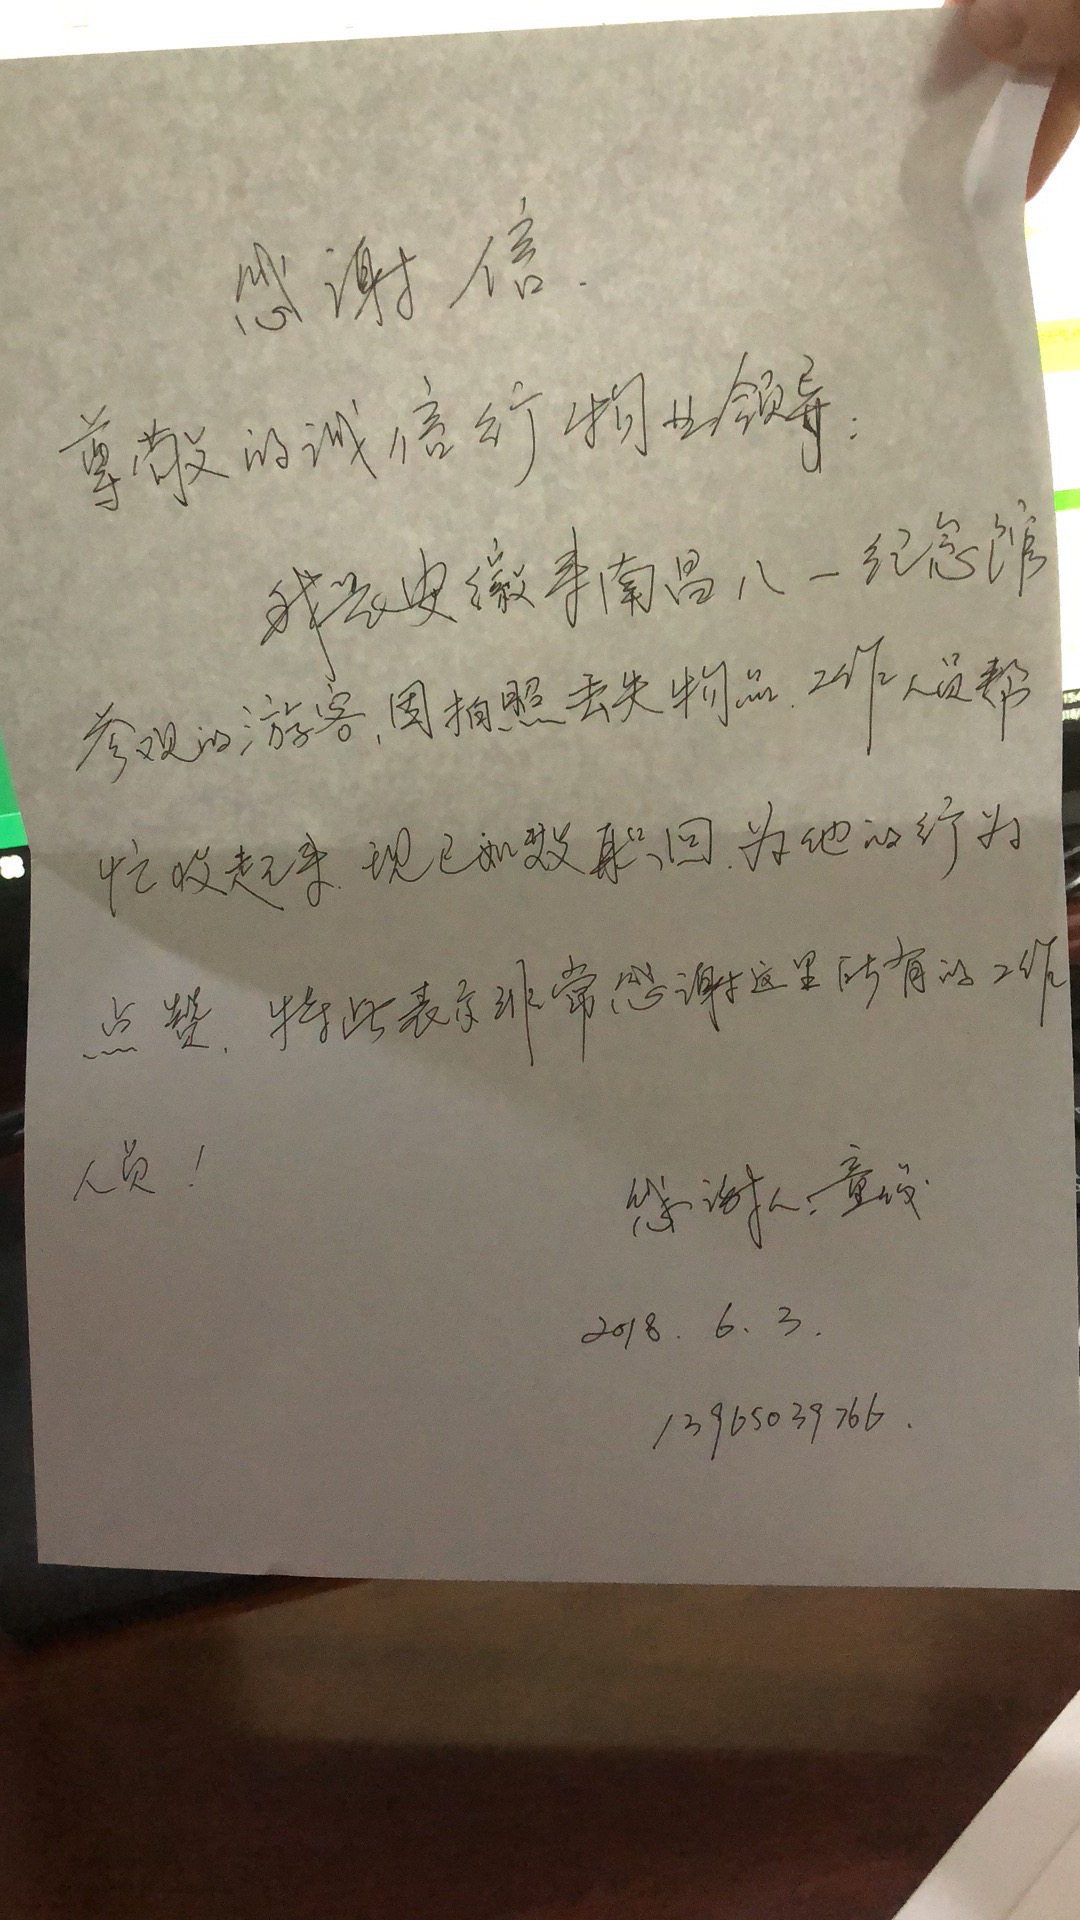 感谢信.
尊敬的诚信行物业领导:
我是安徽来南昌八一纪念馆
参观的游客,因拍照丢失物品.工作人员帮
忙收起来.现已如数取回.为他的行为
点赞.特此表示非常感谢这里所有的工作
人员!
感谢人:童
2018.6.3.
13965039766.